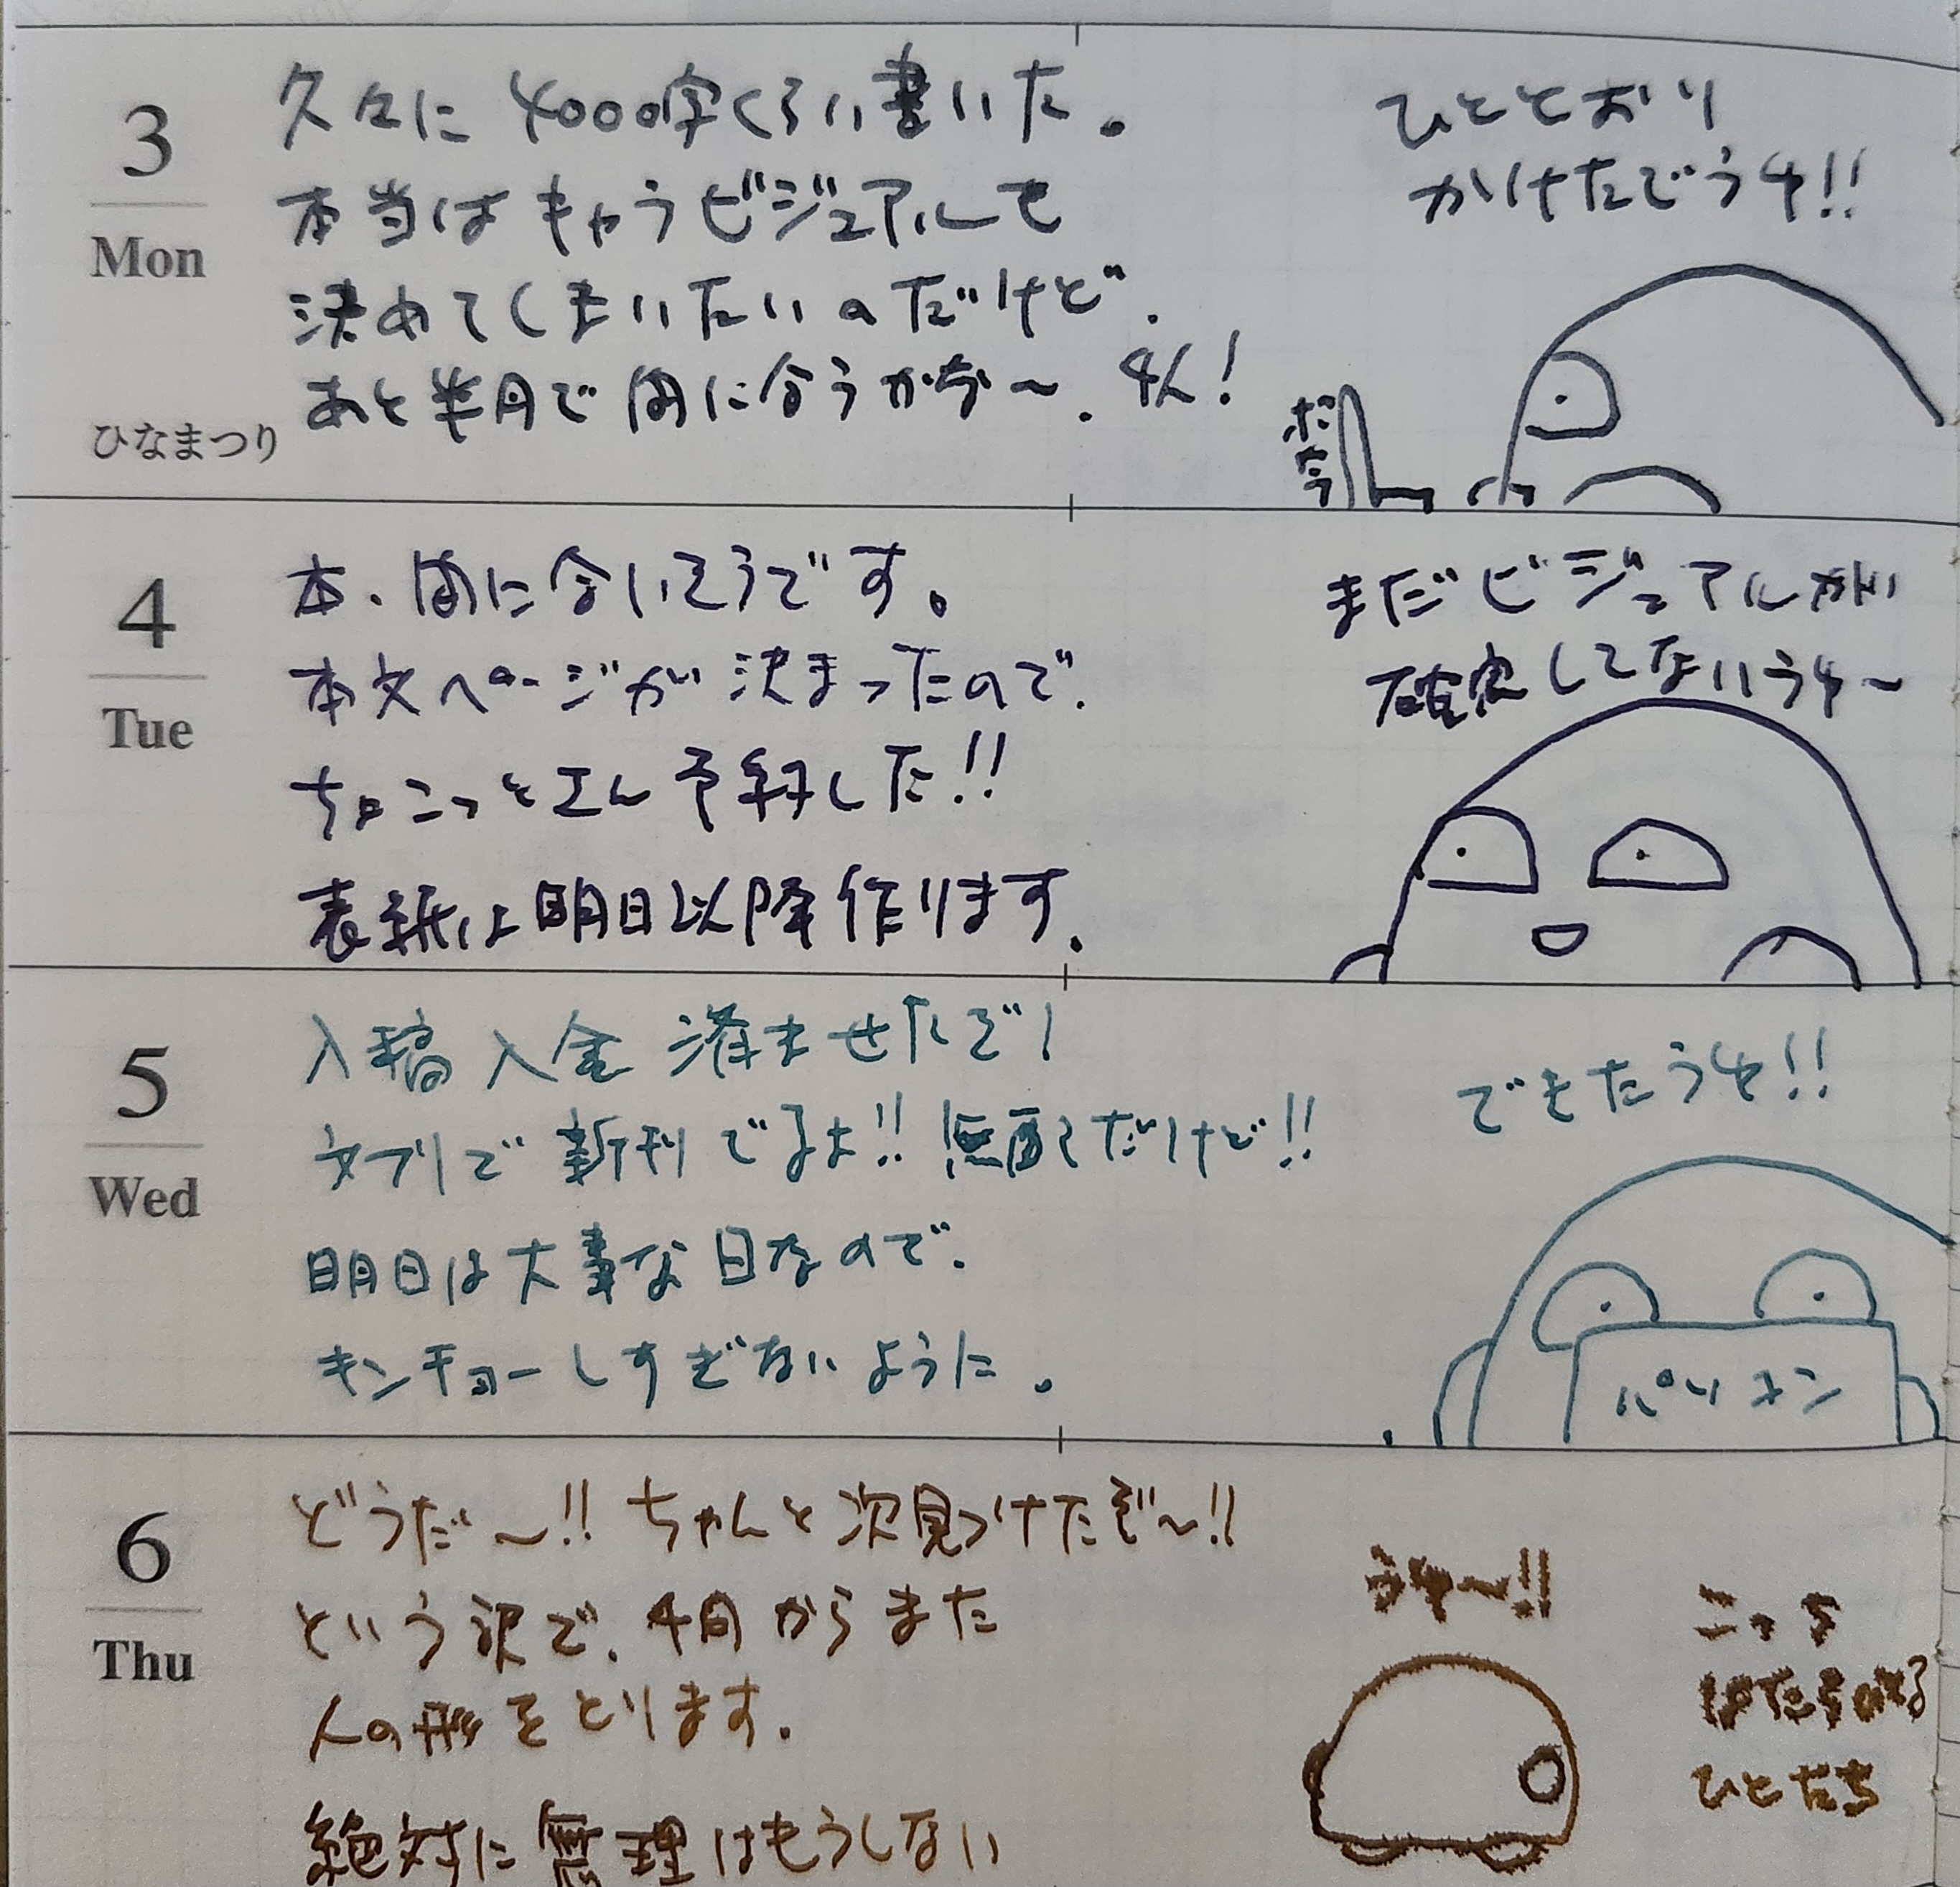 3
Mon
ひなまつり
久々に4000字くらい書いた。
本当はもうビジュアルも
決めてしまいたいのだけど、
あと半月で間に合うかな〜。
ひととおり
かけたでうよ!!
4
Tue
本、間に合いそうです。
本文ページが決まったので、
ちょこっとエん予約した!!
表紙は明日以降作ります。
まだビジュアルが
確定してないうよ〜
5
Wed
入稿入金済ませたぞ!
文フリで新刊でるよ!!無配だけど!!
明日は大事な日なので、
キンチョーしすぎないように。
できたうよ!!
パソコン
6
Thu
どうだ〜!!ちゃんと次見つけたぞ〜!!
という訳で、4月からまた
人の形をとります。
絶対に無理はもうしない
うよ〜!!
こっち
ひとたち